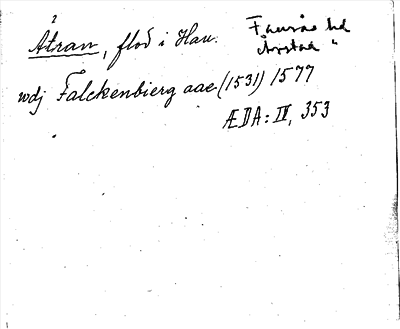 Ätran, flod i Hall.
Faurås hd
Årstad "
wdj Falckenbierg aae (1531) 1577
ÆDA: IV, 353